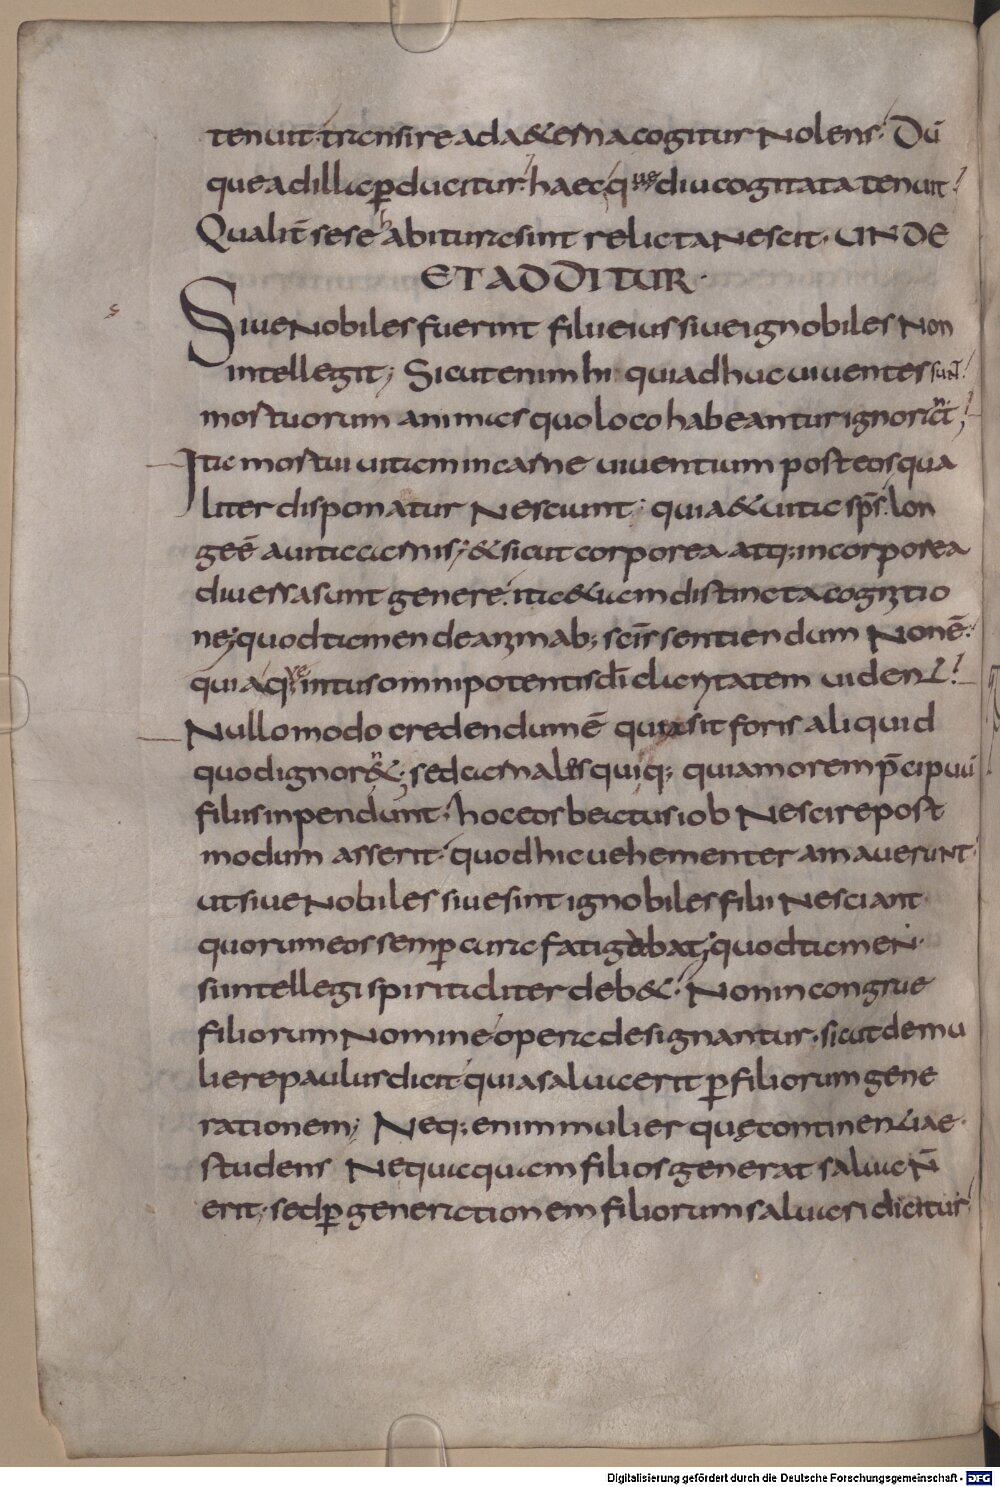 tenuit transire ad a&erna cogitur nolens. Dū
que ad illa p̱ducitur haec que diu cogitata tenuit
Qualit̄ sese habitura sint relicta nescit. UNDE
ET ADDITUR.
Siue nobiles fuerint filii eius siue ignobiles non
intellegit; Sicut enim hi qui adhuc uiuentes sunt
mortuorum animas quo loco habeantur ignorant;
Ita mortui uitam in carne uiuentium post eos qua
liter disponatur nesciunt; quia & uita sps̄ lon
ge ē a uita carnis; & sicut corporea atq; incorporea
diuersa sunt genere ita & iam distincta cognitio
ne; quod tamen de animab; scīs sentiendum non ē.
quia que intus omnipotentis dī claritatem uident
Nullo modo credendum ē quia sit foris aliquid
quod ignorent; sed carnales quiq; quia morem p̄cipuū
filiis inpendunt. hoc eos beatus iob nescire post
modum asserit quod hic uehementer amauerunt
ut siue nobiles siue sint ignobiles filii nesciant
quorum eos semp̱ cura fatigabat; quod tamen
si intellegi spiritaliter deb&. Non incongrue
filiorum nomine opera designantur. sicut de mu
liere paulus dicit quia salua erit p̱ filiorum gene
rationem; Neq; enim mulier quę continentiae
studens nequaquam filios generat salua ñ
erit. sed p̱ generationem filiorum saluari dicitur
Digitalisierung gefördert durch die Deutsche Forschungsgemeinschaft - DFG